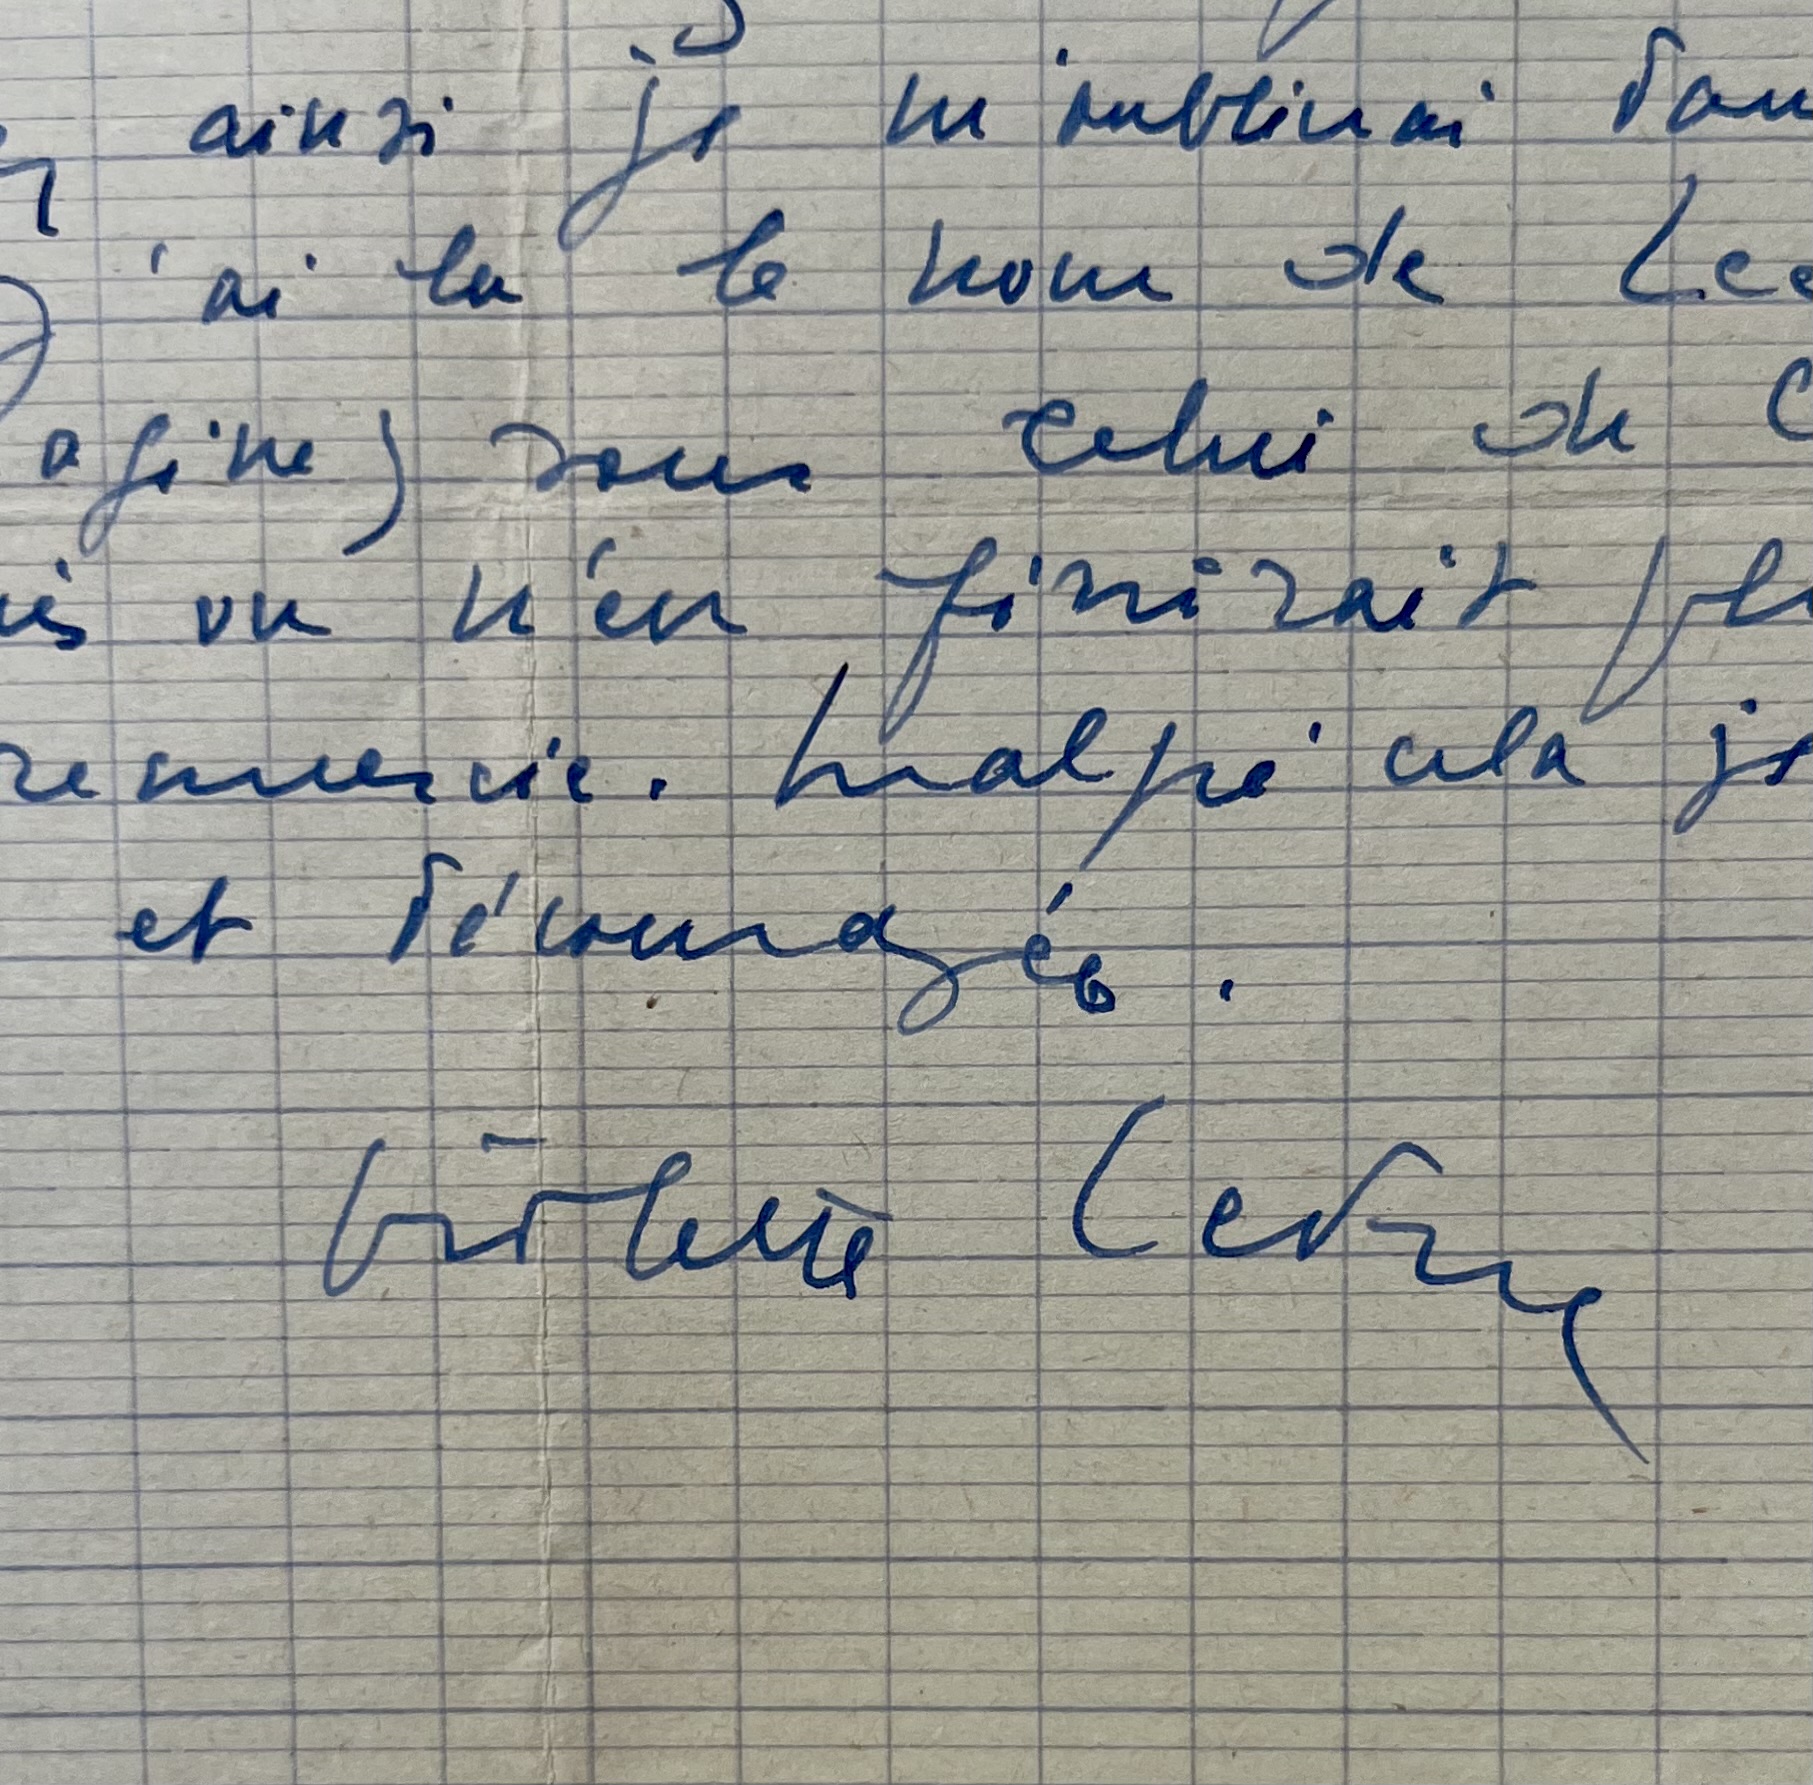 ainsi je m'oublierai dans
j'ai lu le nom de Lec
agine) sous celui de C
is on n'en finirait pl
remercie. Malgré cela je
et découragée.
Violette Leduc